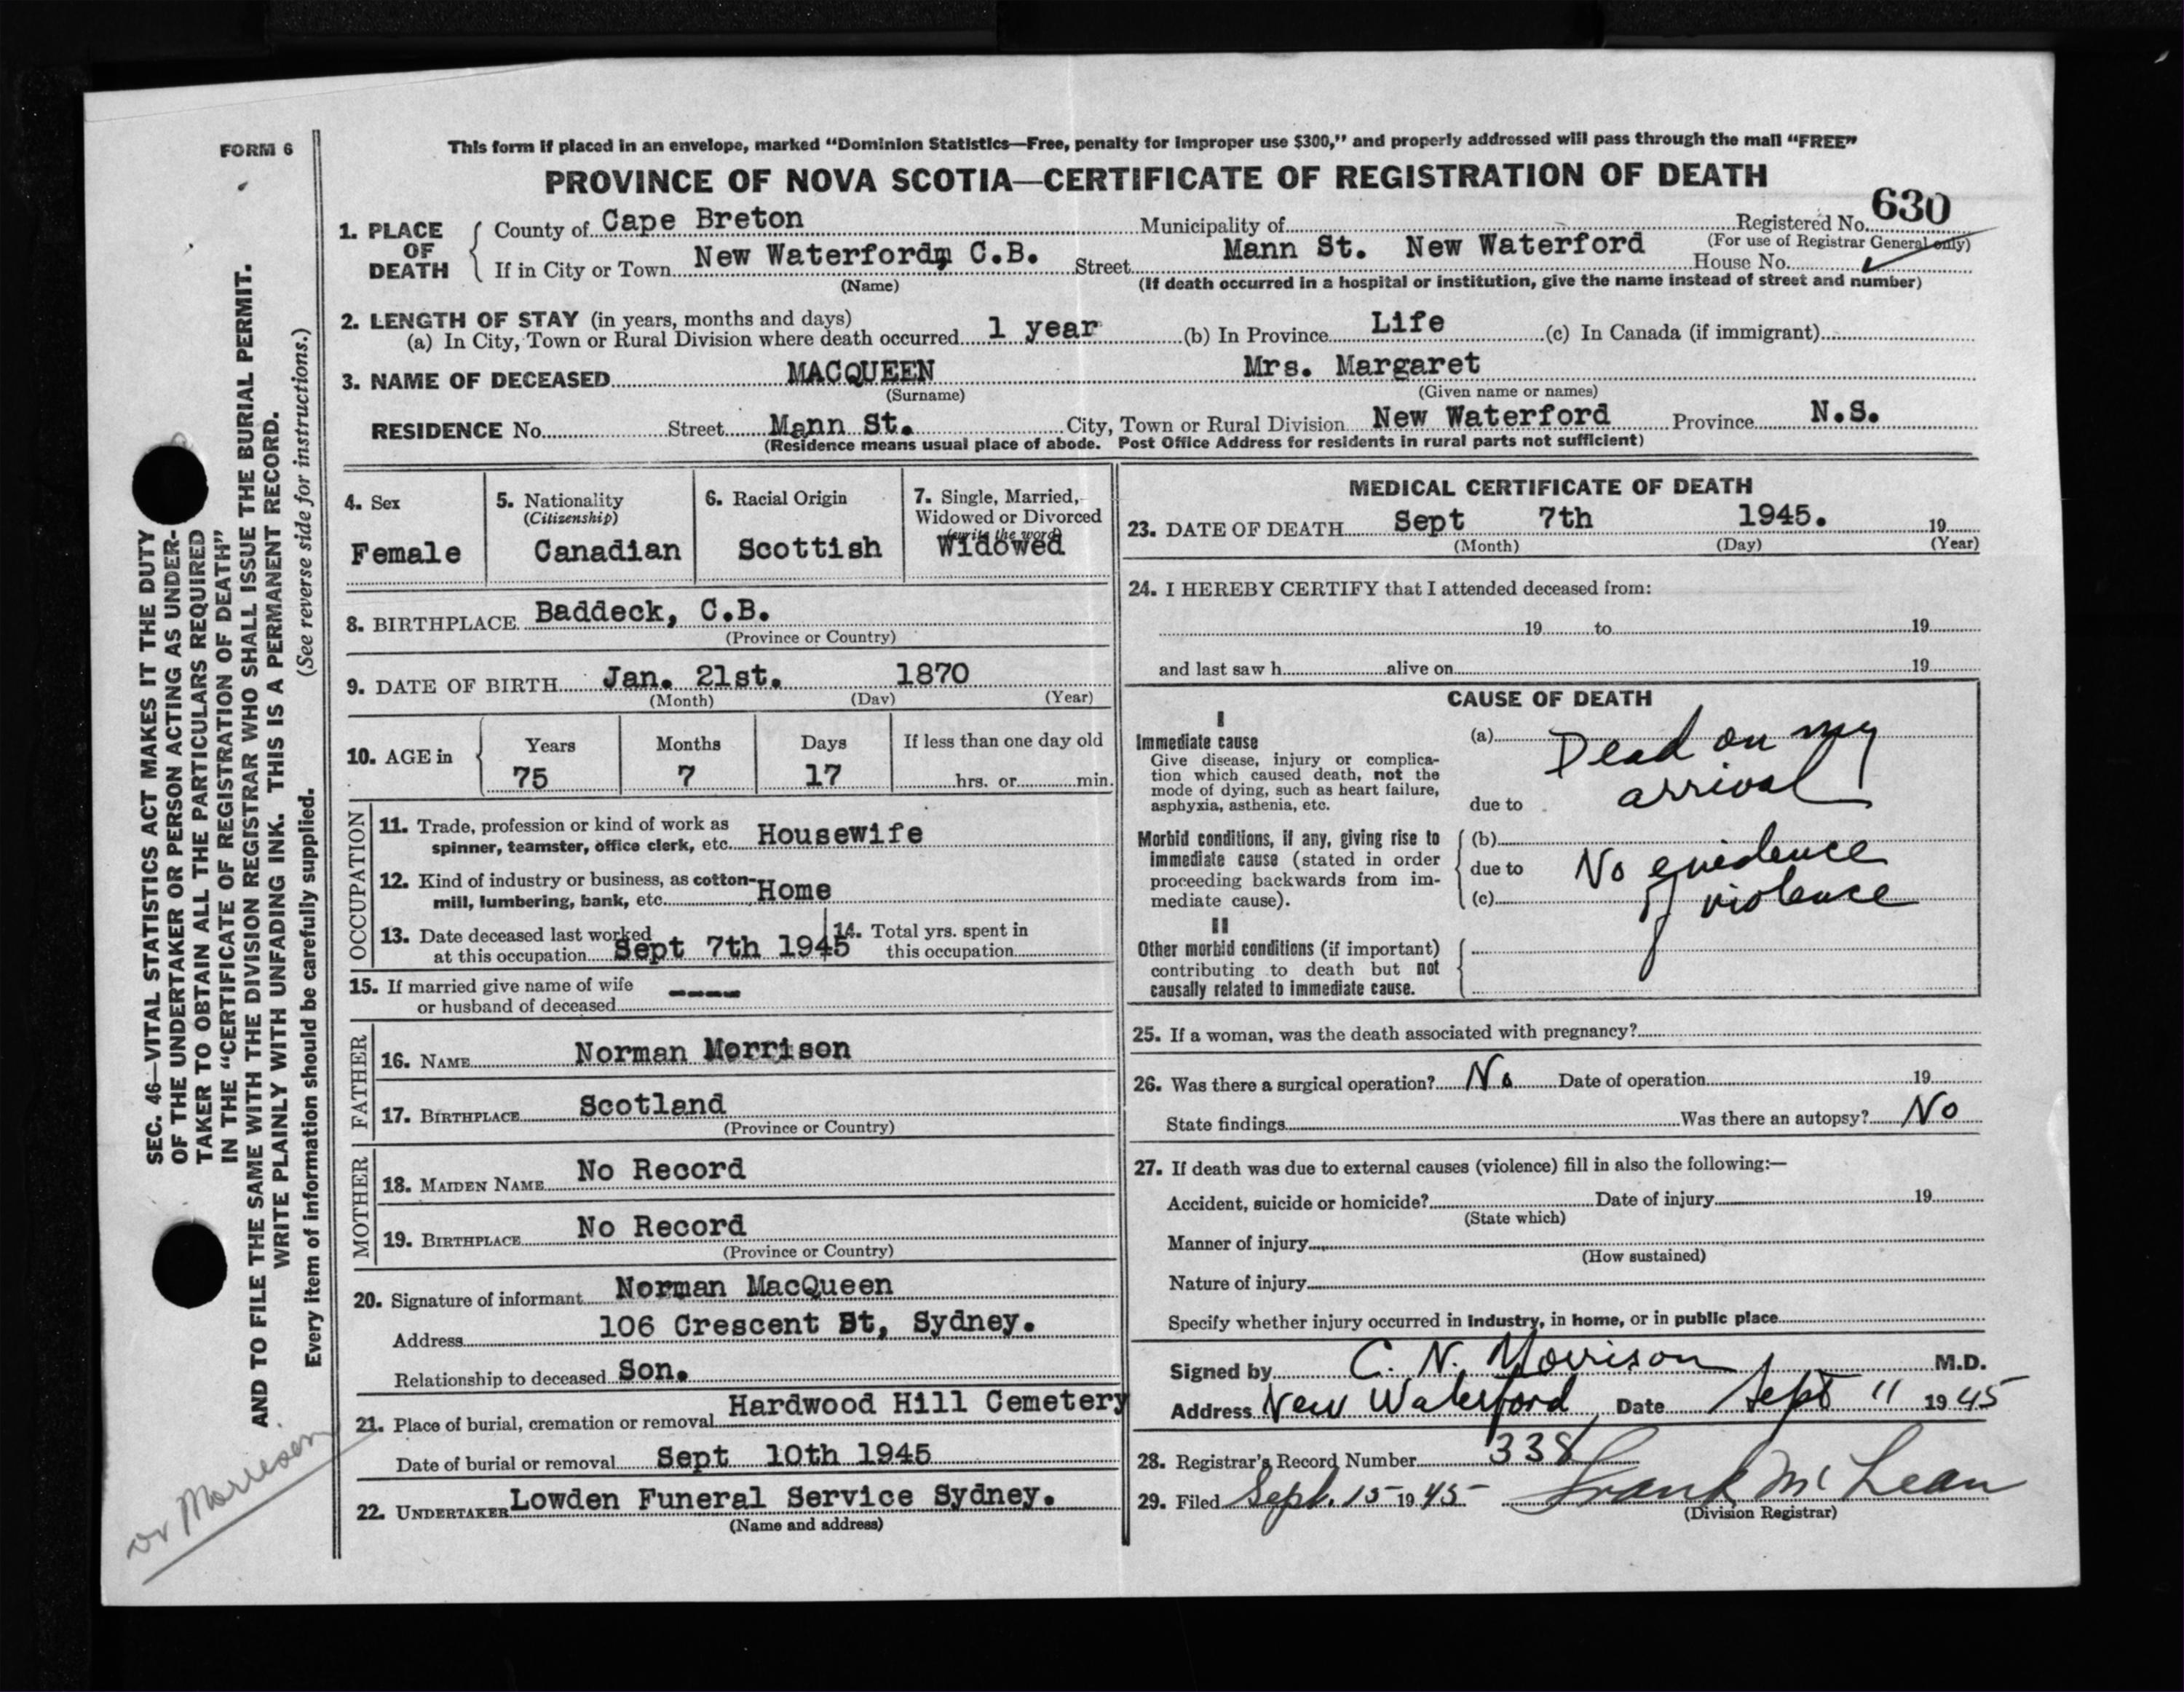 FORM 6
This form if placed in an envelope, marked "Dominion Statistics—Free, penalty for improper use $300," and properly addressed will pass through the mail "FREE"
PROVINCE OF NOVA SCOTIA—CERTIFICATE OF REGISTRATION OF DEATH
630
1. PLACE OF DEATH { County of Cape Breton Municipality of Registered No.
(For use of Registrar General only)
If in City or Town New Waterfordm, C.B. Street Mann St. New Waterford House No.
(Name) (If death occurred in a hospital or institution, give the name instead of street and number)
2. LENGTH OF STAY (in years, months and days)
(a) In City, Town or Rural Division where death occurred 1 year (b) In Province Life (c) In Canada (if immigrant)
3. NAME OF DECEASED MACQUEEN Mrs. Margaret
(Surname) (Given name or names)
RESIDENCE No. Street Mann St. City, Town or Rural Division New Waterford Province N.S.
(Residence means usual place of abode. Post Office Address for residents in rural parts not sufficient)
4. Sex
Female
5. Nationality
(Citizenship)
Canadian
6. Racial Origin
Scottish
7. Single, Married, Widowed or Divorced
(write the word)
Widowed
8. BIRTHPLACE Baddeck, C.B.
(Province or Country)
9. DATE OF BIRTH Jan. 21st. 1870
(Month) (Day) (Year)
10. AGE in { Years Months Days If less than one day old
75 7 17 hrs. or min.
OCCUPATION
11. Trade, profession or kind of work as
spinner, teamster, office clerk, etc. Housewife
12. Kind of industry or business, as cotton-
mill, lumbering, bank, etc. Home
13. Date deceased last worked
at this occupation Sept 7th 1945
14. Total yrs. spent in
this occupation
15. If married give name of wife
or husband of deceased ----
FATHER
16. NAME Norman Morrison
17. BIRTHPLACE Scotland
(Province or Country)
MOTHER
18. MAIDEN NAME No Record
19. BIRTHPLACE No Record
(Province or Country)
20. Signature of informant Norman MacQueen
Address 106 Crescent St, Sydney.
Relationship to deceased Son.
21. Place of burial, cremation or removal Hardwood Hill Cemetery
Date of burial or removal Sept 10th 1945
22. UNDERTAKER Lowden Funeral Service Sydney.
(Name and address)
MEDICAL CERTIFICATE OF DEATH
23. DATE OF DEATH Sept 7th 1945. 19
(Month) (Day) (Year)
24. I HEREBY CERTIFY that I attended deceased from:
19 to 19
and last saw h alive on 19
CAUSE OF DEATH
I
Immediate cause
Give disease, injury or complica-
tion which caused death, not the
mode of dying, such as heart failure,
asphyxia, asthenia, etc.
(a) Dead on my
due to arrival
Morbid conditions, if any, giving rise to
immediate cause (stated in order
proceeding backwards from im-
mediate cause).
(b)
due to No evidence
(c) of violence
II
Other morbid conditions (if important)
contributing to death but not
causally related to immediate cause.
25. If a woman, was the death associated with pregnancy?
26. Was there a surgical operation? No Date of operation 19
State findings Was there an autopsy? No
27. If death was due to external causes (violence) fill in also the following:—
Accident, suicide or homicide? Date of injury 19
(State which)
Manner of injury
(How sustained)
Nature of injury
Specify whether injury occurred in industry, in home, or in public place
Signed by C. N. Morrison M.D.
Address New Waterford Date Sept 11 1945
28. Registrar's Record Number 338
29. Filed Sept. 15 1945 Frank McLean
(Division Registrar)
SEC. 46—VITAL STATISTICS ACT MAKES IT THE DUTY
OF THE UNDERTAKER OR PERSON ACTING AS UNDER-
TAKER TO OBTAIN ALL THE PARTICULARS REQUIRED
IN THE "CERTIFICATE OF REGISTRATION OF DEATH"
AND TO FILE THE SAME WITH THE DIVISION REGISTRAR WHO SHALL ISSUE THE BURIAL PERMIT.
WRITE PLAINLY WITH UNFADING INK. THIS IS A PERMANENT RECORD.
Every item of information should be carefully supplied. (See reverse side for instructions.)
or Morrison